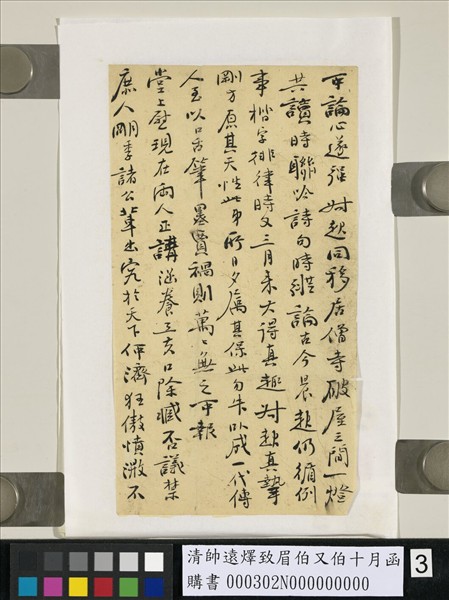 可論心遂強 對趨同移居僧寺破屋三間一燈
共讀時聯吟詩句時縱論古今晨起仍循例
事楷字排律時文三月來大得真趣對趨真摯
剛方原其天性此弟所日夕厲其保此勿失以成一代傳
人至以口舌筆墨賈禍則萬萬無之可報
堂上慰現在兩人正講涵養工夫口除臧否議禁
庶人明季諸公輩出究於天下何濟狂傲憤激不
清師遠燡致眉伯又伯十月函
購書 000302N000000000
3